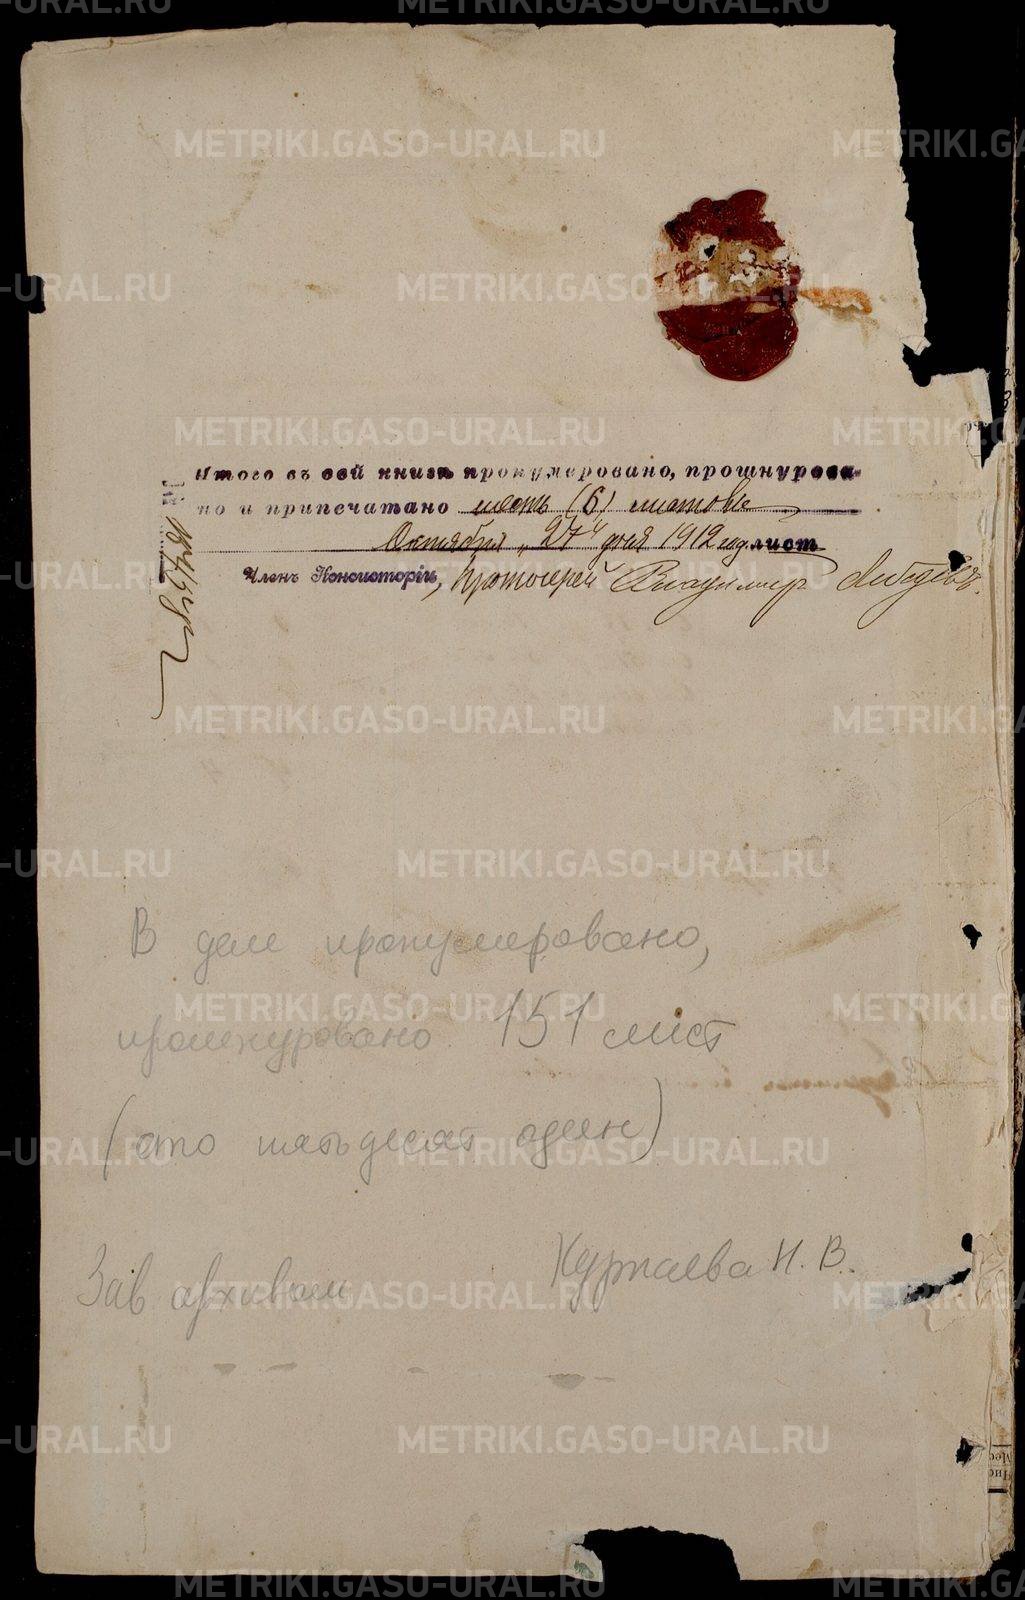 Итого въ сей книгѣ пронумеровано, прошнурова-
но и припечатано шесть (6) листовъ
Октября „27" дня 1912 год листъ
Членъ Консисторіи, Протоіерей Владимиръ Лебедевъ.
В деле пронумеровано,
прошнуровано 151 лист
(сто пятьдесят один)
Зав архивом Н. В.
METRIKI.GASO-URAL.RU